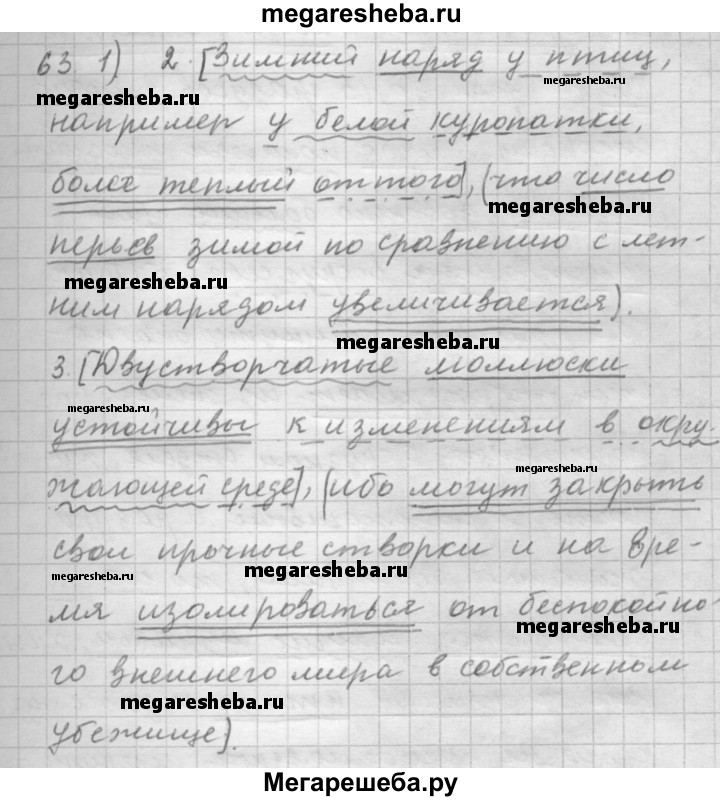 megaresheba.ru
63. 1) 2. [Зимний наряд у птиц,
megaresheba.ru
megaresheba.ru
например у белой куропатки,
более теплый оттого], (что число
megaresheba.ru
перьев зимой по сравнению с лет-
megaresheba.ru
ним нарядом увеличивается).
megaresheba.ru
3. [Двустворчатые моллюски
megaresheba.ru
устойчивы к изменениям в окру-
megaresheba.ru
жающей среде], (ибо могут закрыть
свои прочные створки и на вре-
megaresheba.ru
megaresheba.ru
мя изолироваться от беспокойно-
megaresheba.ru
го внешнего мира в собственном
megaresheba.ru
убежище).
Мегарешеба.ру